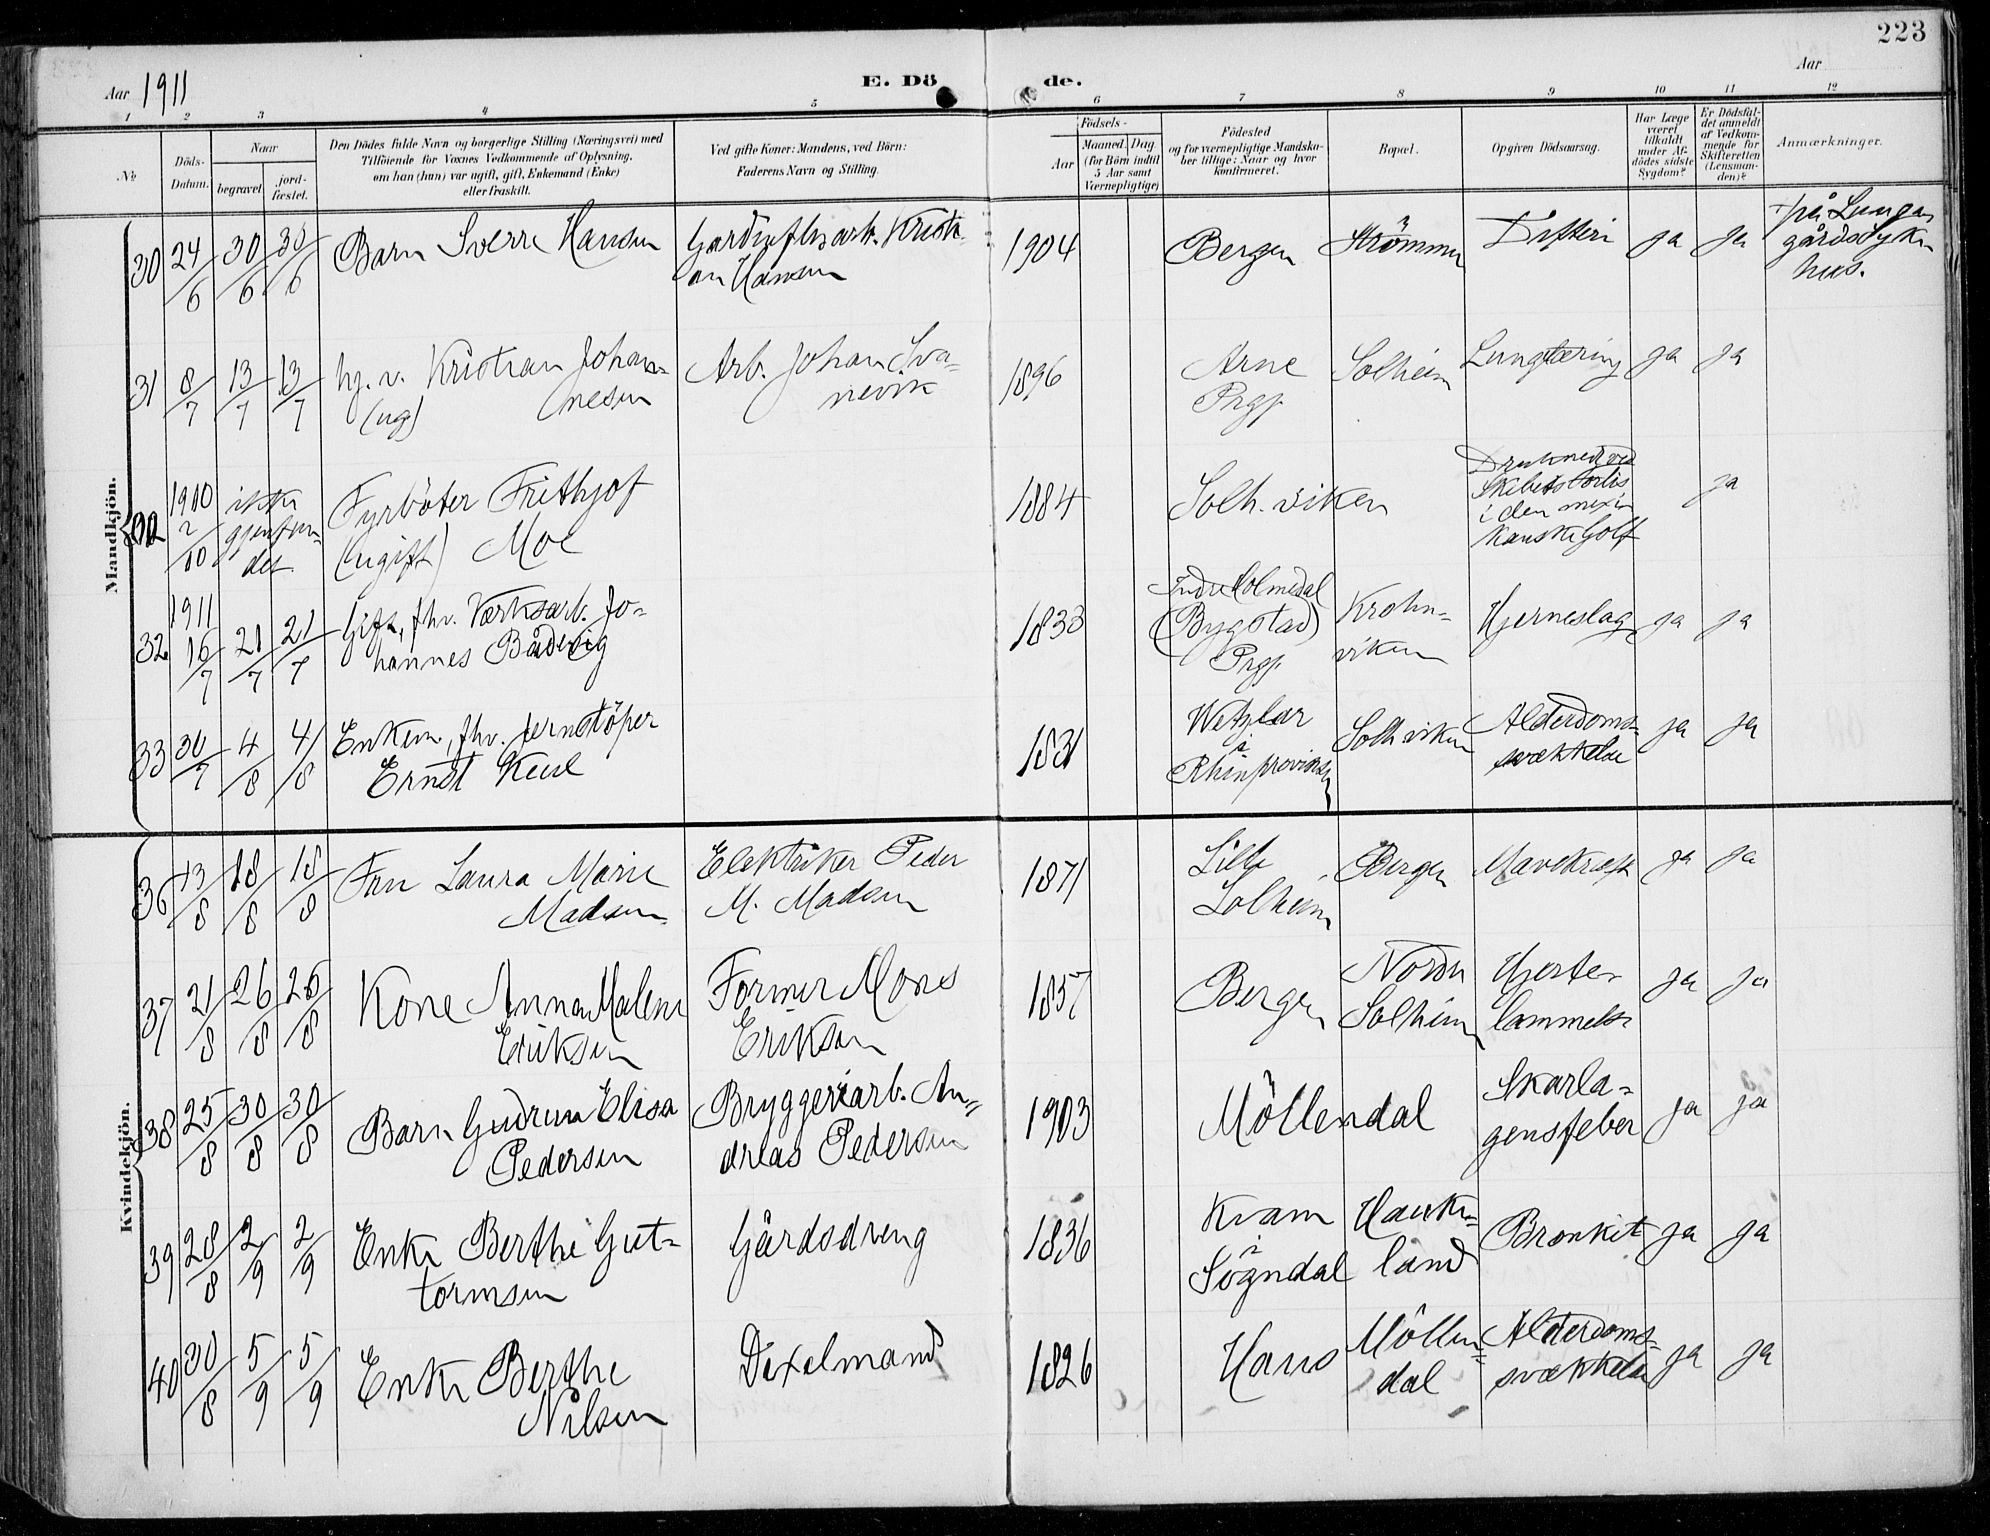 223
Aar 1911
E. Dö
de.
Aar
1 2 3 4 5 6 7 8 9 10 11 12
№
Döds-
Datum.
Naar
begravet
jord-
fæstet.
Den Dödes fulde Navn og borgerlige Stilling (Næringsvei) med
Tilföiende for Voxnes Vedkommende af Oplysning,
om han (hun) var ugift, gift, Enkemand (Enke)
eller fraskilt.
Ved gifte Koner: Mandens, ved Börn:
Faderens Navn og Stilling.
Födsels-
Aar
Maaned. Dag.
(for Börn indtil
5 Aar samt
Værnepligtige)
Födested
og for værnepligtige Mandska-
ber tillige: Naar og hvor
konfirmeret.
Bopæl.
Opgiven Dödsaarsag.
Har Læge
været
tilkaldt
under Af-
dödes sidste
Sygdom?
Er Dödsfal-
det anmeldt
af Vedkom-
mende for
Skifteretten
(Lensman-
den)?
Anmærkninger.
Mandkjön.
30 24/6 30/6 30/6 Barn Sverre Hansen
Kristi-
an Hansen
1904 Bergen Strömmen Difteri ja ja
på Lunge-
gårdssyke-
hus.
31 8/7 13/7 13/7 hj. v. Kristian Johan-
nesen
(ug)
Arb. Johan Sva-
nevik
1896 Arne
Prgj.
Solheim Lungtæring ja ja
1910
2/10
ikke
gjenfun-
det
Fyrböter Frithjof
(ugift) Moe
1884 Solh. viken
Druknet ved
Skibets forlis
i den mexi-
kanske Golf
ja
1911
32 16/7 21/7 21/7 Gift, fhv. Værksarb. Jo-
hannes Bådsvig
1833
Indre Holmedal
(Bygstad)
Prgj.
Krohn-
viken
Hjerneslag ja ja
33 30/7 4/8 4/8 Enkem., fhv. Jernstöper
Ernst Keul
1831
Wetzlar
i
Rhinprovinsen
Solh viken
Alderdoms-
svækkelse
ja ja
Kvindekjön.
36 13/8 18/8 18/8 Fru Laura Marie
Madsen
Elektriker Peder
M. Madsen
1871
Lille
Solheim
Bergen Mavekræft ja ja
37 21/8 26/8 26/8 Kone Anna Malene
Eriksen
Former Mons
Eriksen
1857 Bergen
Nordre
Solheim
Hjerte-
lammelse
ja ja
38 25/8 30/8 30/8 Barn Gudrun Elisa
Pedersen
Bryggeriarb. An-
dreas Pedersen
1903 Möllendal
Skarla-
gensfeber
ja ja
39 28/8 2/9 2/9 Enke Berthe Gut-
tormsen
Gårdsdreng
1836
Kvam
i
Sogndal
Hauke-
land
Bronkit ja ja
40 30/8 5/9 5/9 Enke Berthe
Nilsen
Dixelmand
1826 Haus
Möllen-
dal
Alderdoms-
svækkelse
ja ja